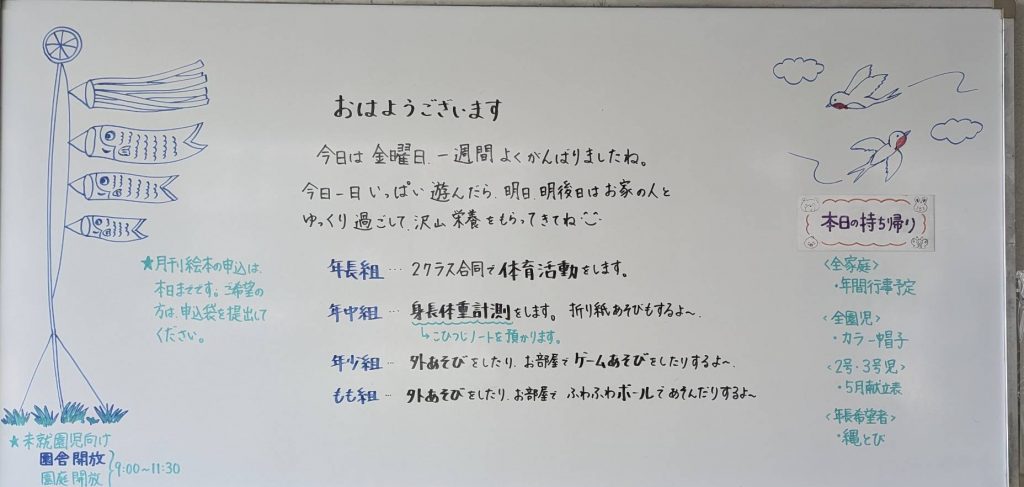 おはようございます
今日は金曜日、一週間よくがんばりましたね。
今日一日いっぱい遊んだら、明日、明後日はお家の人と
ゆっくり過ごして、沢山栄養をもらってきてね
年長組…2クラス合同で体育活動をします。
年中組…身長体重計測をします。折り紙あそびもするよ〜、
↳こひつじノートを預かります。
年少組…外あそびをしたり、お部屋でゲームあそびをしたりするよ〜、
もも組…外あそびをしたり、お部屋でふわふわボールであそんだりするよ〜
★月刊絵本の申込は、
本日までです。ご希望の
方は、申込袋を提出して
ください。
★未就園児向け
園舎開放
園庭開放
9:00~11:30
本日の持ち帰り
<全家庭>
・年間行事予定
<全園児>
・カラー帽子
<2号・3号児>
・5月献立表
<年長希望者>
・縄とび